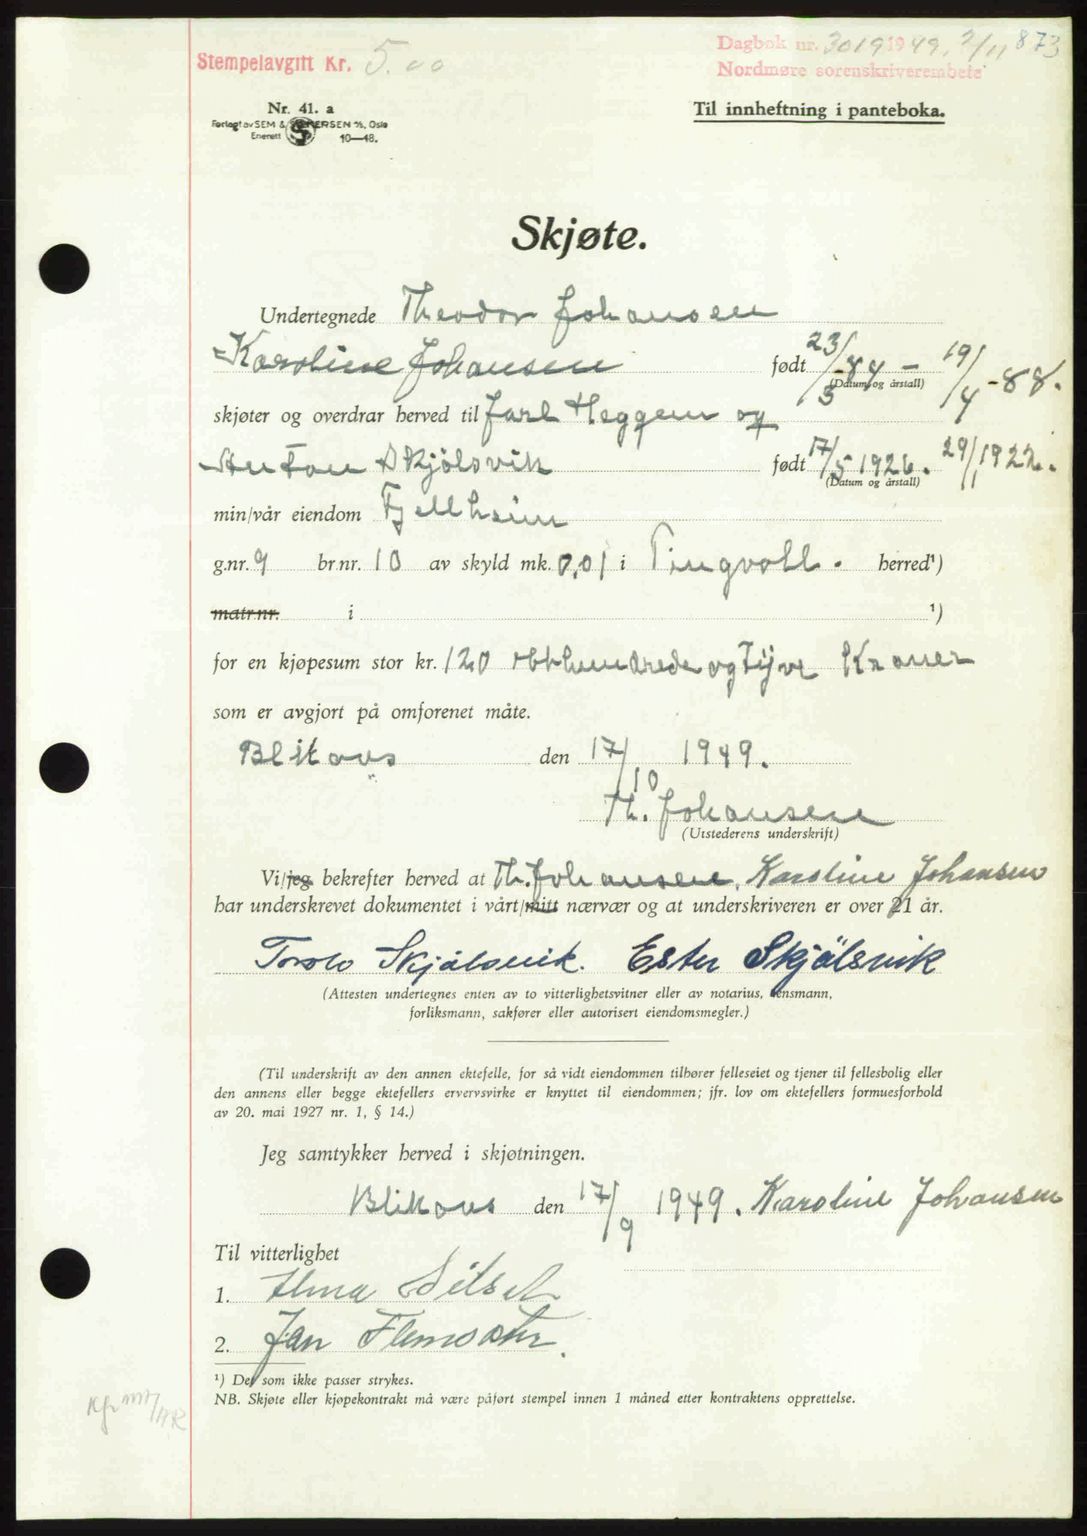 Stempelavgift Kr. 5.00
Dagbok nr. 3019 1949, 2/11 873
Nordmøre sorenskriverembete
Nr. 41. a
Forlagt av SEM & STENERSEN A/S, Oslo
Enerett 10—48.
Til innheftning i panteboka.
Skjøte.
Undertegnede Theodor Johansen
Karoline Johansen født 23/5-84 - 19/4-88.
(Datum og årstall)
skjøter og overdrar herved til Jarl Heggem og
Anton Skjölsvik født 17/5 1926. 29/1 1922.
(Datum og årstall)
min/vår eiendom Fjellheim
g.nr. 9 br.nr. 10 av skyld mk. 0,01 i Tingvoll. herred¹)
matr.nr. i ¹)
for en kjøpesum stor kr. 120 og Tyve Kroner
som er avgjort på omforenet måte.
den 17/10 1949.
Th. Johansen
(Utstederens underskrift)
Vi/jeg bekrefter herved at Th. Johansen, Karoline Johansen
har underskrevet dokumentet i vårt/mitt nærvær og at underskriveren er over 21 år.
Skjölsvik. Ester Skjölsvik
(Attesten undertegnes enten av to vitterlighetsvitner eller av notarius, lensmann,
forliksmann, sakfører eller autorisert eiendomsmegler.)
(Til underskrift av den annen ektefelle, for så vidt eiendommen tilhører felleseiet og tjener til fellesbolig eller
den annens eller begge ektefellers ervervsvirke er knyttet til eiendommen; jfr. lov om ektefellers formuesforhold
av 20. mai 1927 nr. 1, § 14.)
Jeg samtykker herved i skjøtningen.
den 17/9 1949. Karoline Johansen
Til vitterlighet
1. Alma
2. Jan
¹) Det som ikke passer strykes.
NB. Skjøte eller kjøpekontrakt må være påført stempel innen 1 måned etter kontraktens opprettelse.